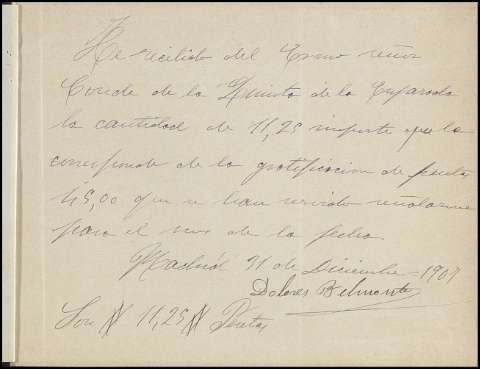 He recibido del Exmo señor
Conde de la Quinta de la Enjarada
la cantidad de 11,25 importe que la
corresponde de la gratificacion de pesetas
45,00 que se han servido señalarme
para el mes de la fecha
Madrid 31 de Diciembre 1909
Dolores Belmonte
Son # 11,25 # Pesetas